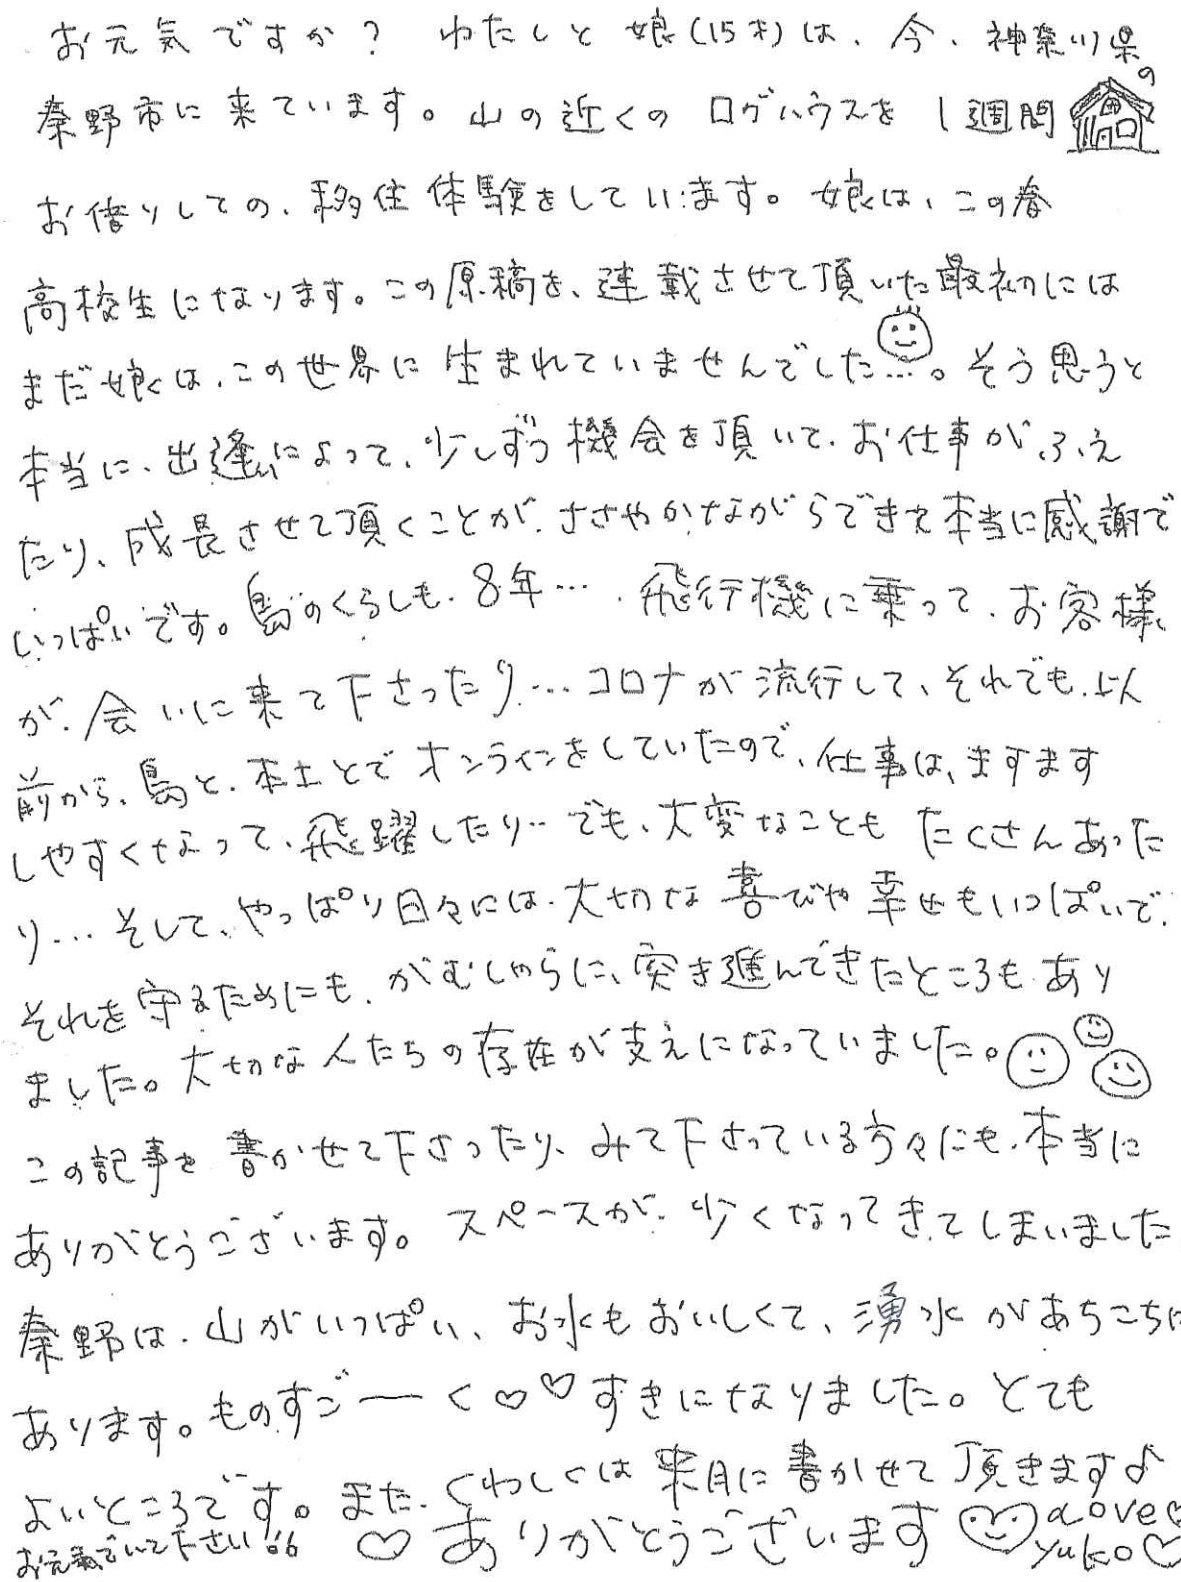 お元気ですか? わたしと娘(15才)は、今、神奈川県の
秦野市に来ています。山の近くのログハウスを1週間
お借りしての、移住体験をしています。娘は、この春
高校生になります。この原稿を、連載させて頂いた最初には
まだ娘は、この世界に生まれていませんでした…。そう思うと
本当に、出逢いによって、少しずつ機会を頂いて、お仕事がふえ
たり、成長させて頂くことが、ささやかながらできて本当に感謝で
いっぱいです。島のくらしも、8年…、飛行機に乗って、お客様
が、会いに来て下さったり…コロナが流行して、それでも、以
前から、島と、本土とでオンラインをしていたので、仕事は、ますます
しやすくなって、飛躍したり…でも、大変なこともたくさんあった
り…そして、やっぱり日々には、大切な喜びや幸せもいっぱいで、
それを守るためにも、がむしゃらに、突き進んできたところもあり
ました。大切な人たちの存在が支えになっていました。
この記事を書かせて下さったり、みて下さっている方々にも、本当に
ありがとうございます。スペースが、少くなってきてしまいました
秦野は、山がいっぱい、お水もおいしくて、湧水があちこちに
あります。ものすごーく♡♡すきになりました。とても
よいところです。また、くわしくは来月に書かせて頂きます♪
お元気でいて下さい!
♡ありがとうございます
Love♡
yuko♡